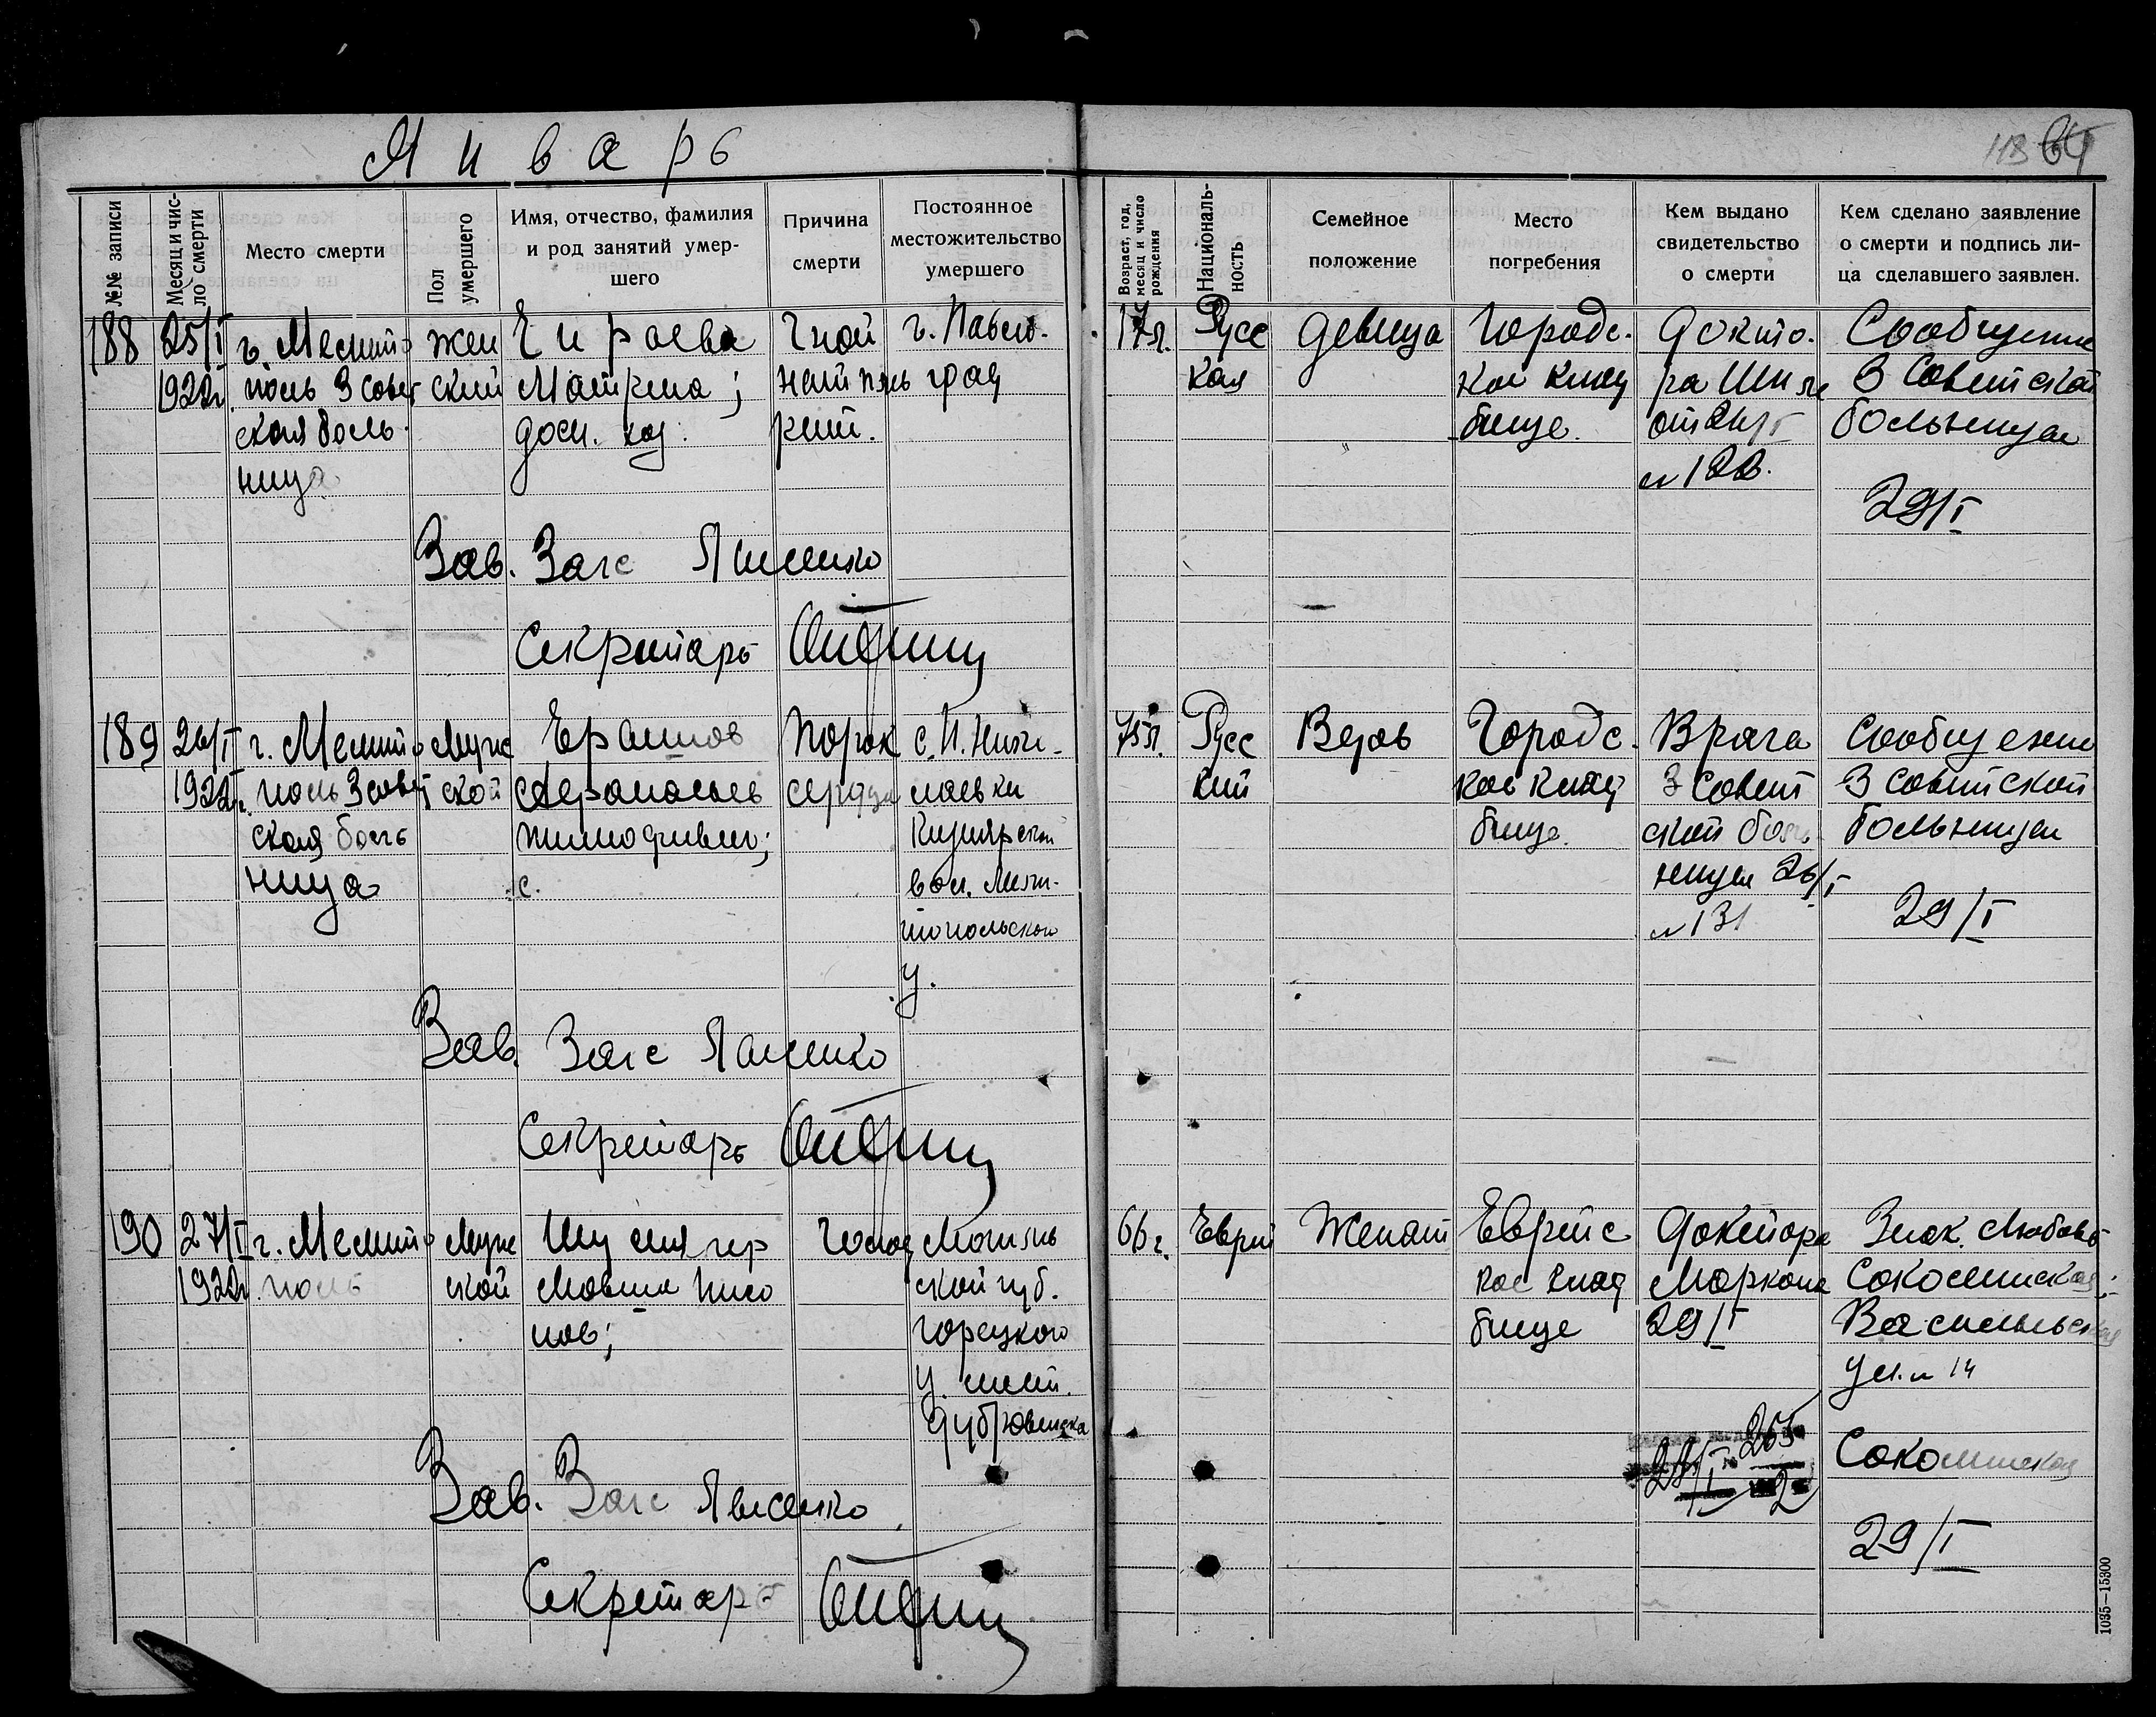 Январь
113 64
№№ записи
Месяц и чис-
ло смерти
Место смерти
Пол
умершего
Имя, отчество, фамилия
и род занятий умер-
шего
Причина
смерти
Постоянное
местожительство
умершего
Возраст, год,
месяц и число
рождения
Националь-
ность
Семейное
положение
Место
погребения
Кем выдано
свидетельство
о смерти
Кем сделано заявление
о смерти и подпись ли-
ца сделавшего заявлен.
188
25/I
1922г.
г. Мелито
поль 3 совет
ская боль
ница
жен
ский
Матрена;
дом. хоз.
Гной
г. Павло-
град
17л.
Русс
кая
девица
Городс-
кое клад
бище
Докто-
ра
№ 122.
Сообщение
3 Советской
больницы
29/I
Зав. Загс
Секретарь
189
26/I
1922г.
г. Мелито
поль 3 совет
ская боль
ница
Муж
ской
Тимофеевич;
Порок
сердца
Кизиярской
вол. Мели-
топольского
у.
75л.
Русс
кий
Вдов
Городс-
кое клад
бище
Врача
3 Совет
ской боль
ницы 26/I
№ 131
Сообщение
3 советской
больницы
29/I
Зав. Загс
Секретарь
190
27/I
1922г.
г. Мелито
поль
Муж
ской
Голод
Могилев
ской губ.
Горецкого
у. мест.
Дубровенска
66г.
Еврей
Женат
Еврейс
кое клад
бище
Доктора
29/I
Знак. Любовь
Соколинская;
Васильевская
ул. № 14
Соколинская
29/I
Зав. Загс
Секретарь
1035—15300